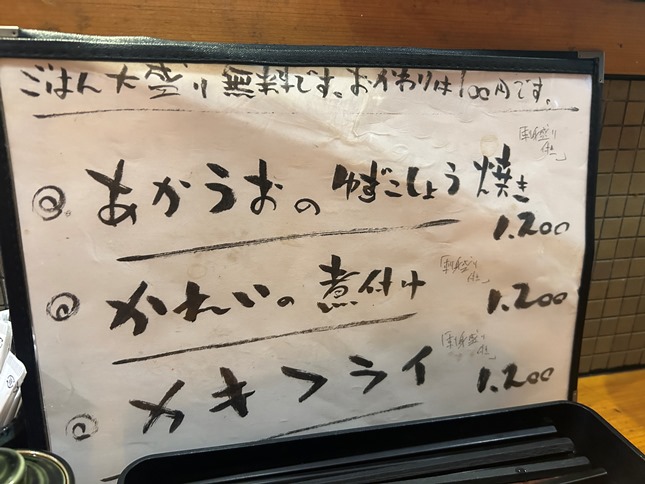 ごはん大盛り無料です。おかわりは100円です。
@ あかうおのゆずこしょう焼き 「刺身盛り付」 1.200
@ かれいの煮付け 「刺身盛り付」 1.200
@ カキフライ 「刺身盛り付」 1.200